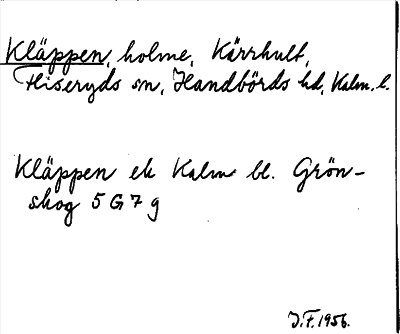 Kläppen, holme, Kärrhult,
Hiseryds sn, Handbörds hd, Kalm. l.
Kläppen ek Kalm bl. Grön-
skog 5 G 7 g
J.F. 1956.